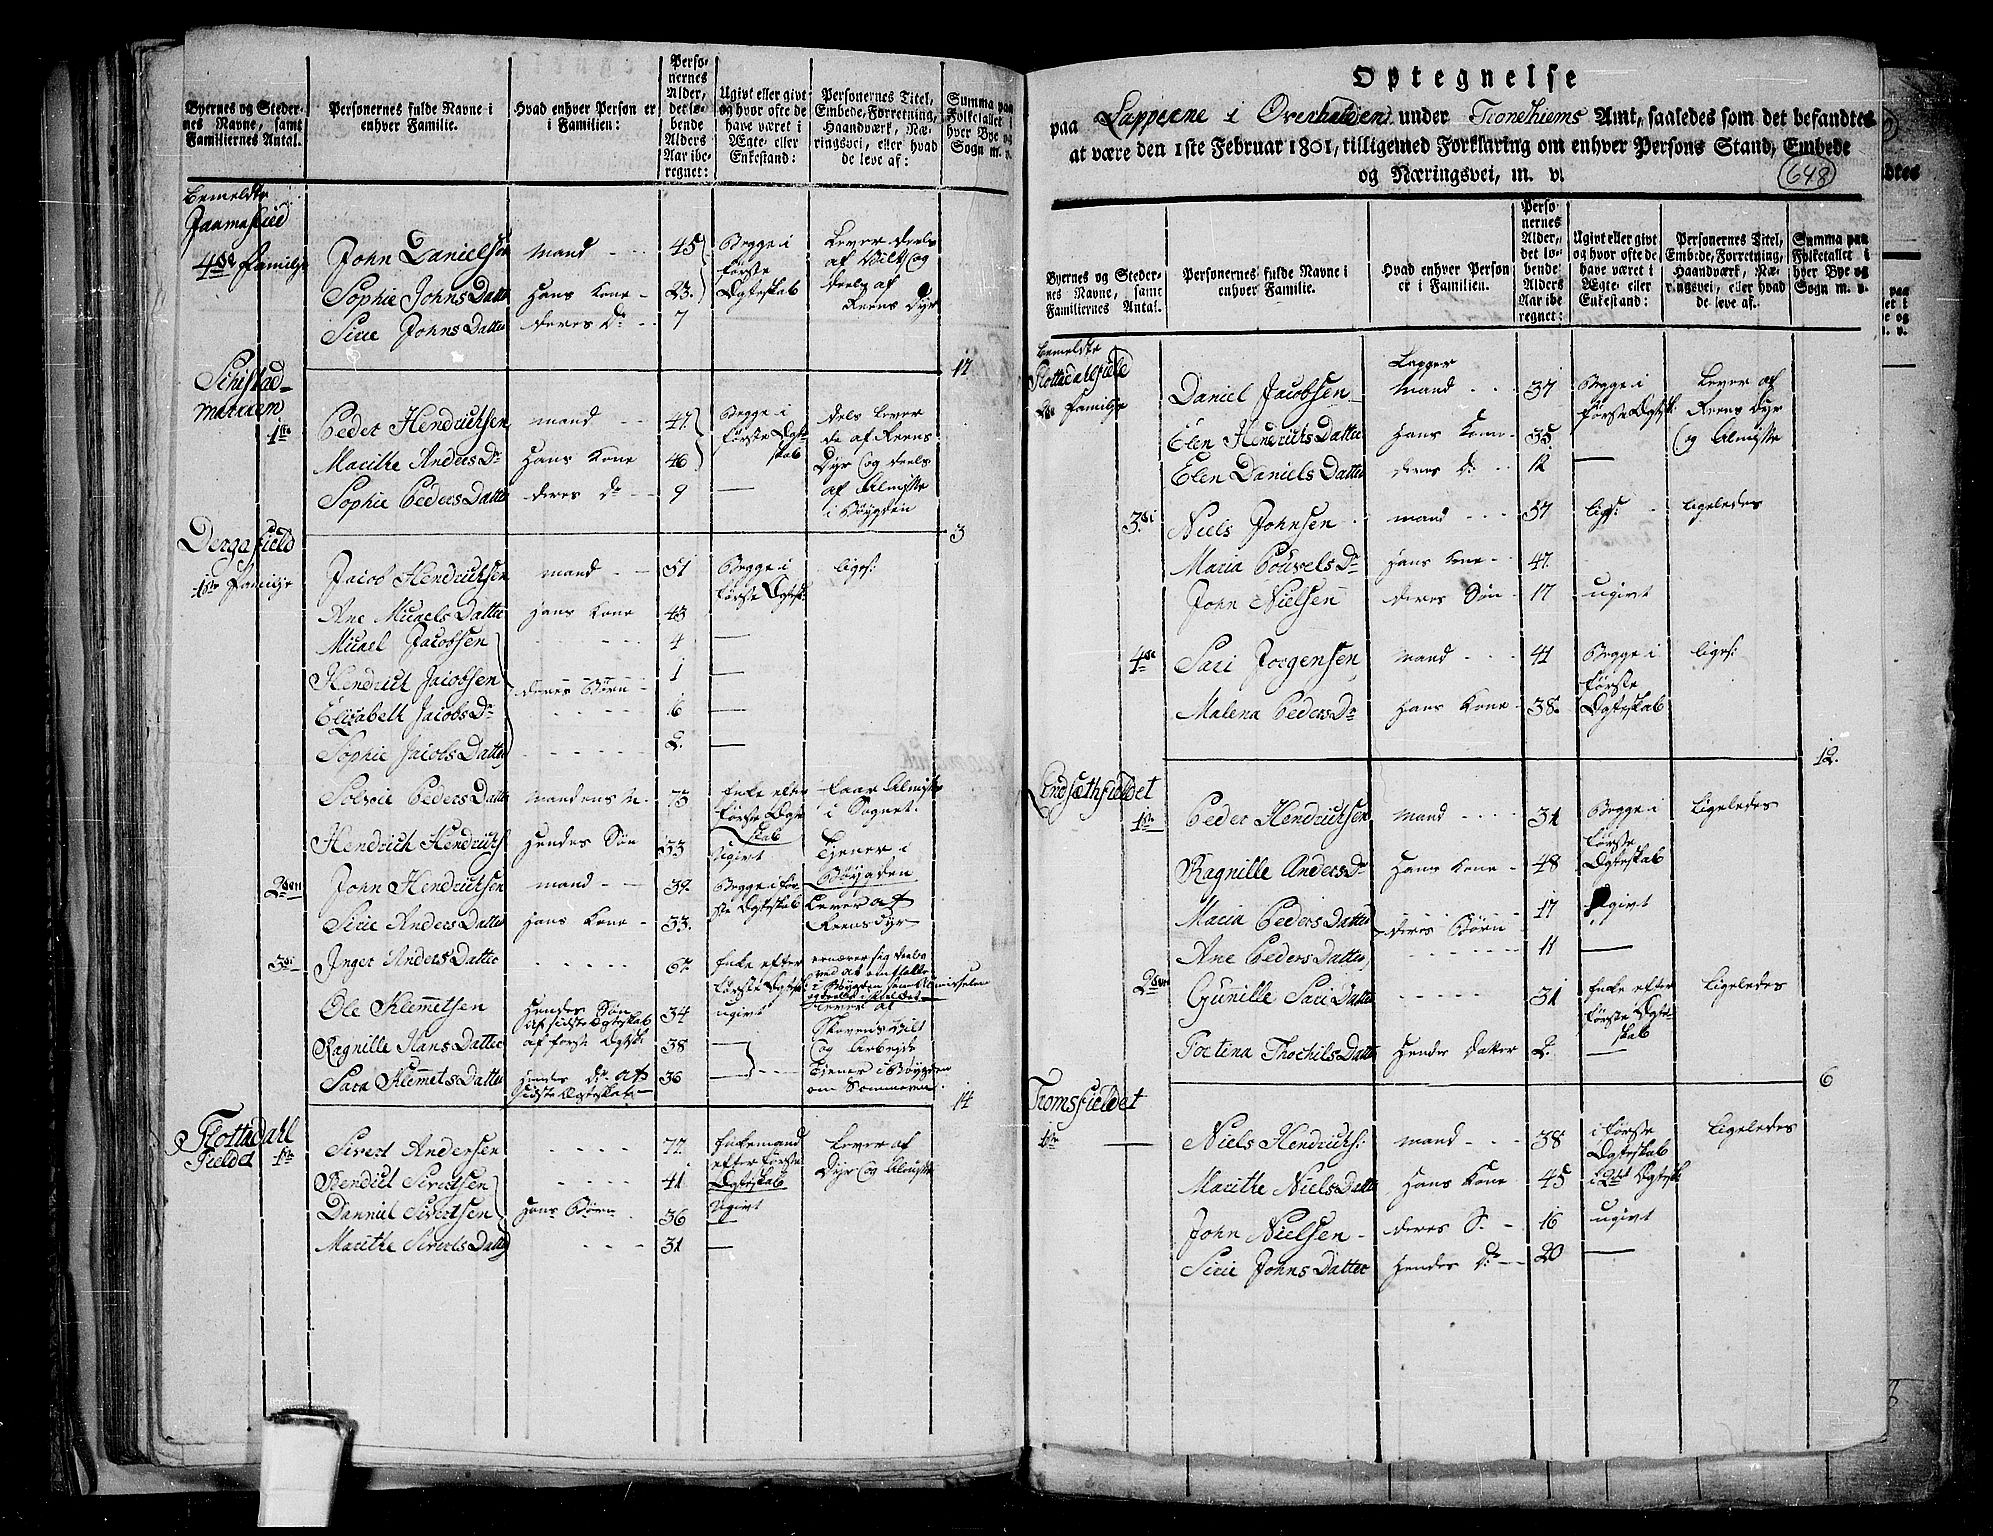 Byernes og Stedernes Navne, samt Familiernes Antal.
Personernes fulde Navne i enhver Familie.
Hvad enhver Person er i Familien:
Personernes Alder, det løbende Alders Aar iberegnet:
Ugivt eller givt og hvor ofte de have været i Ægte- eller Enkestand:
Personernes Titel, Embede, Forretning, Haandværk, Næringsvei, eller hvad de leve af:
Summa paa Folketallet i hver Bye og Sogn m. v.
bemeldte
4de Familje John Danielsen mand 45 Begge i første Ægteskab Lever deels af Vilt og deels af Reens Dyr
Sophie Johns Datter hans Kone 23.
Sirie Johns Datter deres Dr 7
17
Schistad-
markem
1ste Peder Hendrichsen mand 47. Begge i første Ægteskab dels lever de af Reens Dyr og deels af Almisse i Bøygden
Marithe Anders Dr hans Kone 46
Sophie Peders Datter deres Dr 9 —
3
Dergafield
1ste Familje Jacob Hendrichsen mand 51 Begge i første Ægtesk: liges:
Ane Michels Datter hans Kone 43
Michel Jacobsen 4 —
Hendrich Jacobsen deres Børn 1 —
Elisabeth Jacobs Dr 6 —
Sophie Jacobs Datter 2. —
Solvie Peders Datter mandens M. 73 Enke efter første Ægteskab faar Almisse i Sognet.
Hendrich Hendrichs hendes Søn 33 Ugivt Tjener i Bøygden
2den John Hendrichsen mand 39. Begge i første Ægteskab Lever af Reensdyr
Sirie Anders Datter hans Kone 33.
3di Inger Anders Datter 67. Enke efter første Ægtesk
Ole Klemetsen hendes Søn af sidste Ægteskab 34 ugivt lever af Skovens Hilt og Arbejde
Ragnille Hans Datter af første Ægtesk: 38 —
Sara Klemets Datter hendes Dr af sidste Ægteskab 36 — Tjener i Bøygden om Sommeren.
14
Flottadahl
Fieldet 1ste Sivert Andersen 77. Enkemand efter første Ægteskab Lever af Dyr og Almisse
Bendict Sivertsen 41 Ugivt
Danniel Sivertsen hans Børn 36
Marithe Siverts Datter 31 —
Optegnelse
paa Lapperne i Overhalden under Trondhiems Amt, saaledes som det befandtes
at være den 1ste Februar 1801, tilligemed Forklaring om enhver Persons Stand, Embede
og Næringsvei, m. v.
648
Byernes og Stedernes Navne, samt Familiernes Antal.
Personernes fulde Navne i enhver Familie.
Hvad enhver Person er i Familien.
Personernes Alder, det løbende Alders Aar iberegnet:
Ugivt eller givt og hvor ofte de have været i Ægte- eller Enkestand:
Personernes Titel, Embede, Forretning, Haandværk, Næringsvei, eller hvad de leve af.
Summa paa Folketallet i hver Bye og Sogn m. v.
bemeldte
Flottadahlfield
2de Familje Daniel Jacobsen Lapper mand 37 Begge i første Ægtesk. Lever af Reens Dyr og Almisse
Elen Hendrichs Datter hans Kone 35
Elen Daniels Datter deres Dr 12 —
3di Niels Johnsen mand 57 ligs: ligeledes
Maria Pouvels Dr hans Kone 47.
John Nielsen deres Søn 17 ugivt
4de Sari Jorgensen mand 41 Begge i første Ægteskab ligs:
Malena Peders Dr hans Kone 38.
12.
1ste Peder Hendrichsen mand 34 Begge i første Ægteskab ligeledes
Ragnille Anders Dr hans Kone 48
Maria Peders Datter deres Børn 17 Ugivt
Ane Peders Datter 11 —
2den Gunille Sari Datter 31 Enke efter første Ægteskab ligeledes
Torlena Thochils Datter hendes Datter 2. —
6
Tromsfieldet
1ste — Niels Hendrichs: mand 38 i første Ægteskab ligeledes
Marithe Niels Datter hans Kone 45 i 2det Ægtesk
John Nielsen deres S. 16 ugivt
Sirie Johns Datter hendes Dr 20 —